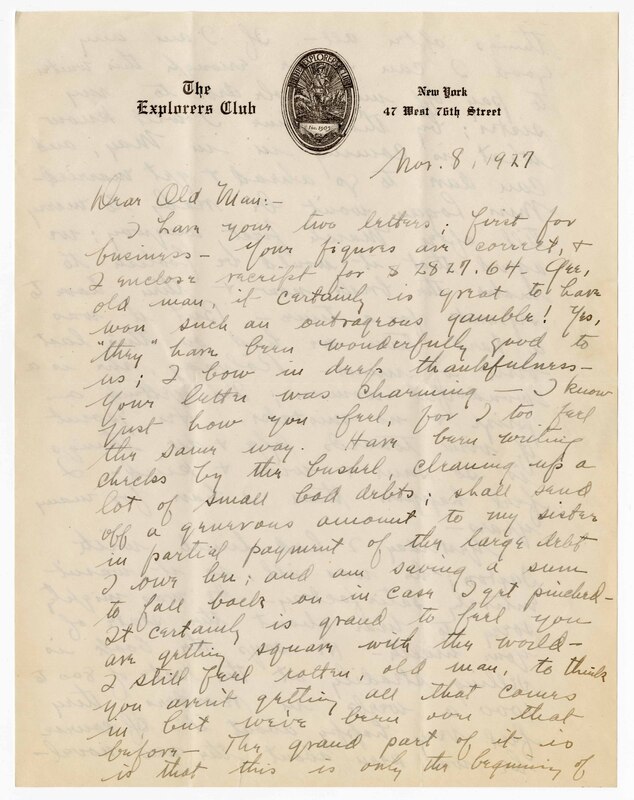 The
Explorers Club
THE EXPLORERS CLUB
Inc. 1905
New York
47 West 76th Street
Nov. 8, 1927
Dear Old Man:-
I have your two letters; first for
business - Your figures are correct, &
I enclose receipt for $ 2827.64 - Gee,
old man, it certainly is great to have
won such an outrageous gamble! Yes,
"they" have been wonderfully good to
us; I bow in deep thankfulness -
Your letter was charming - I know
just how you feel, for I too feel
the same way. Have been writing
checks by the bushel, cleaning up a
lot of small bad debts; shall send
off a generous amount to my sister
in partial payment of the large debt
I owe her; and am saving a sum
to fall back on in case I get pinched -
It certainly is grand to feel you
are getting square with the world -
I still feel rotten, old man, to think
you aren't getting all that comes
in, but we've been over that
before - The grand part of it is
is that this is only the beginning of